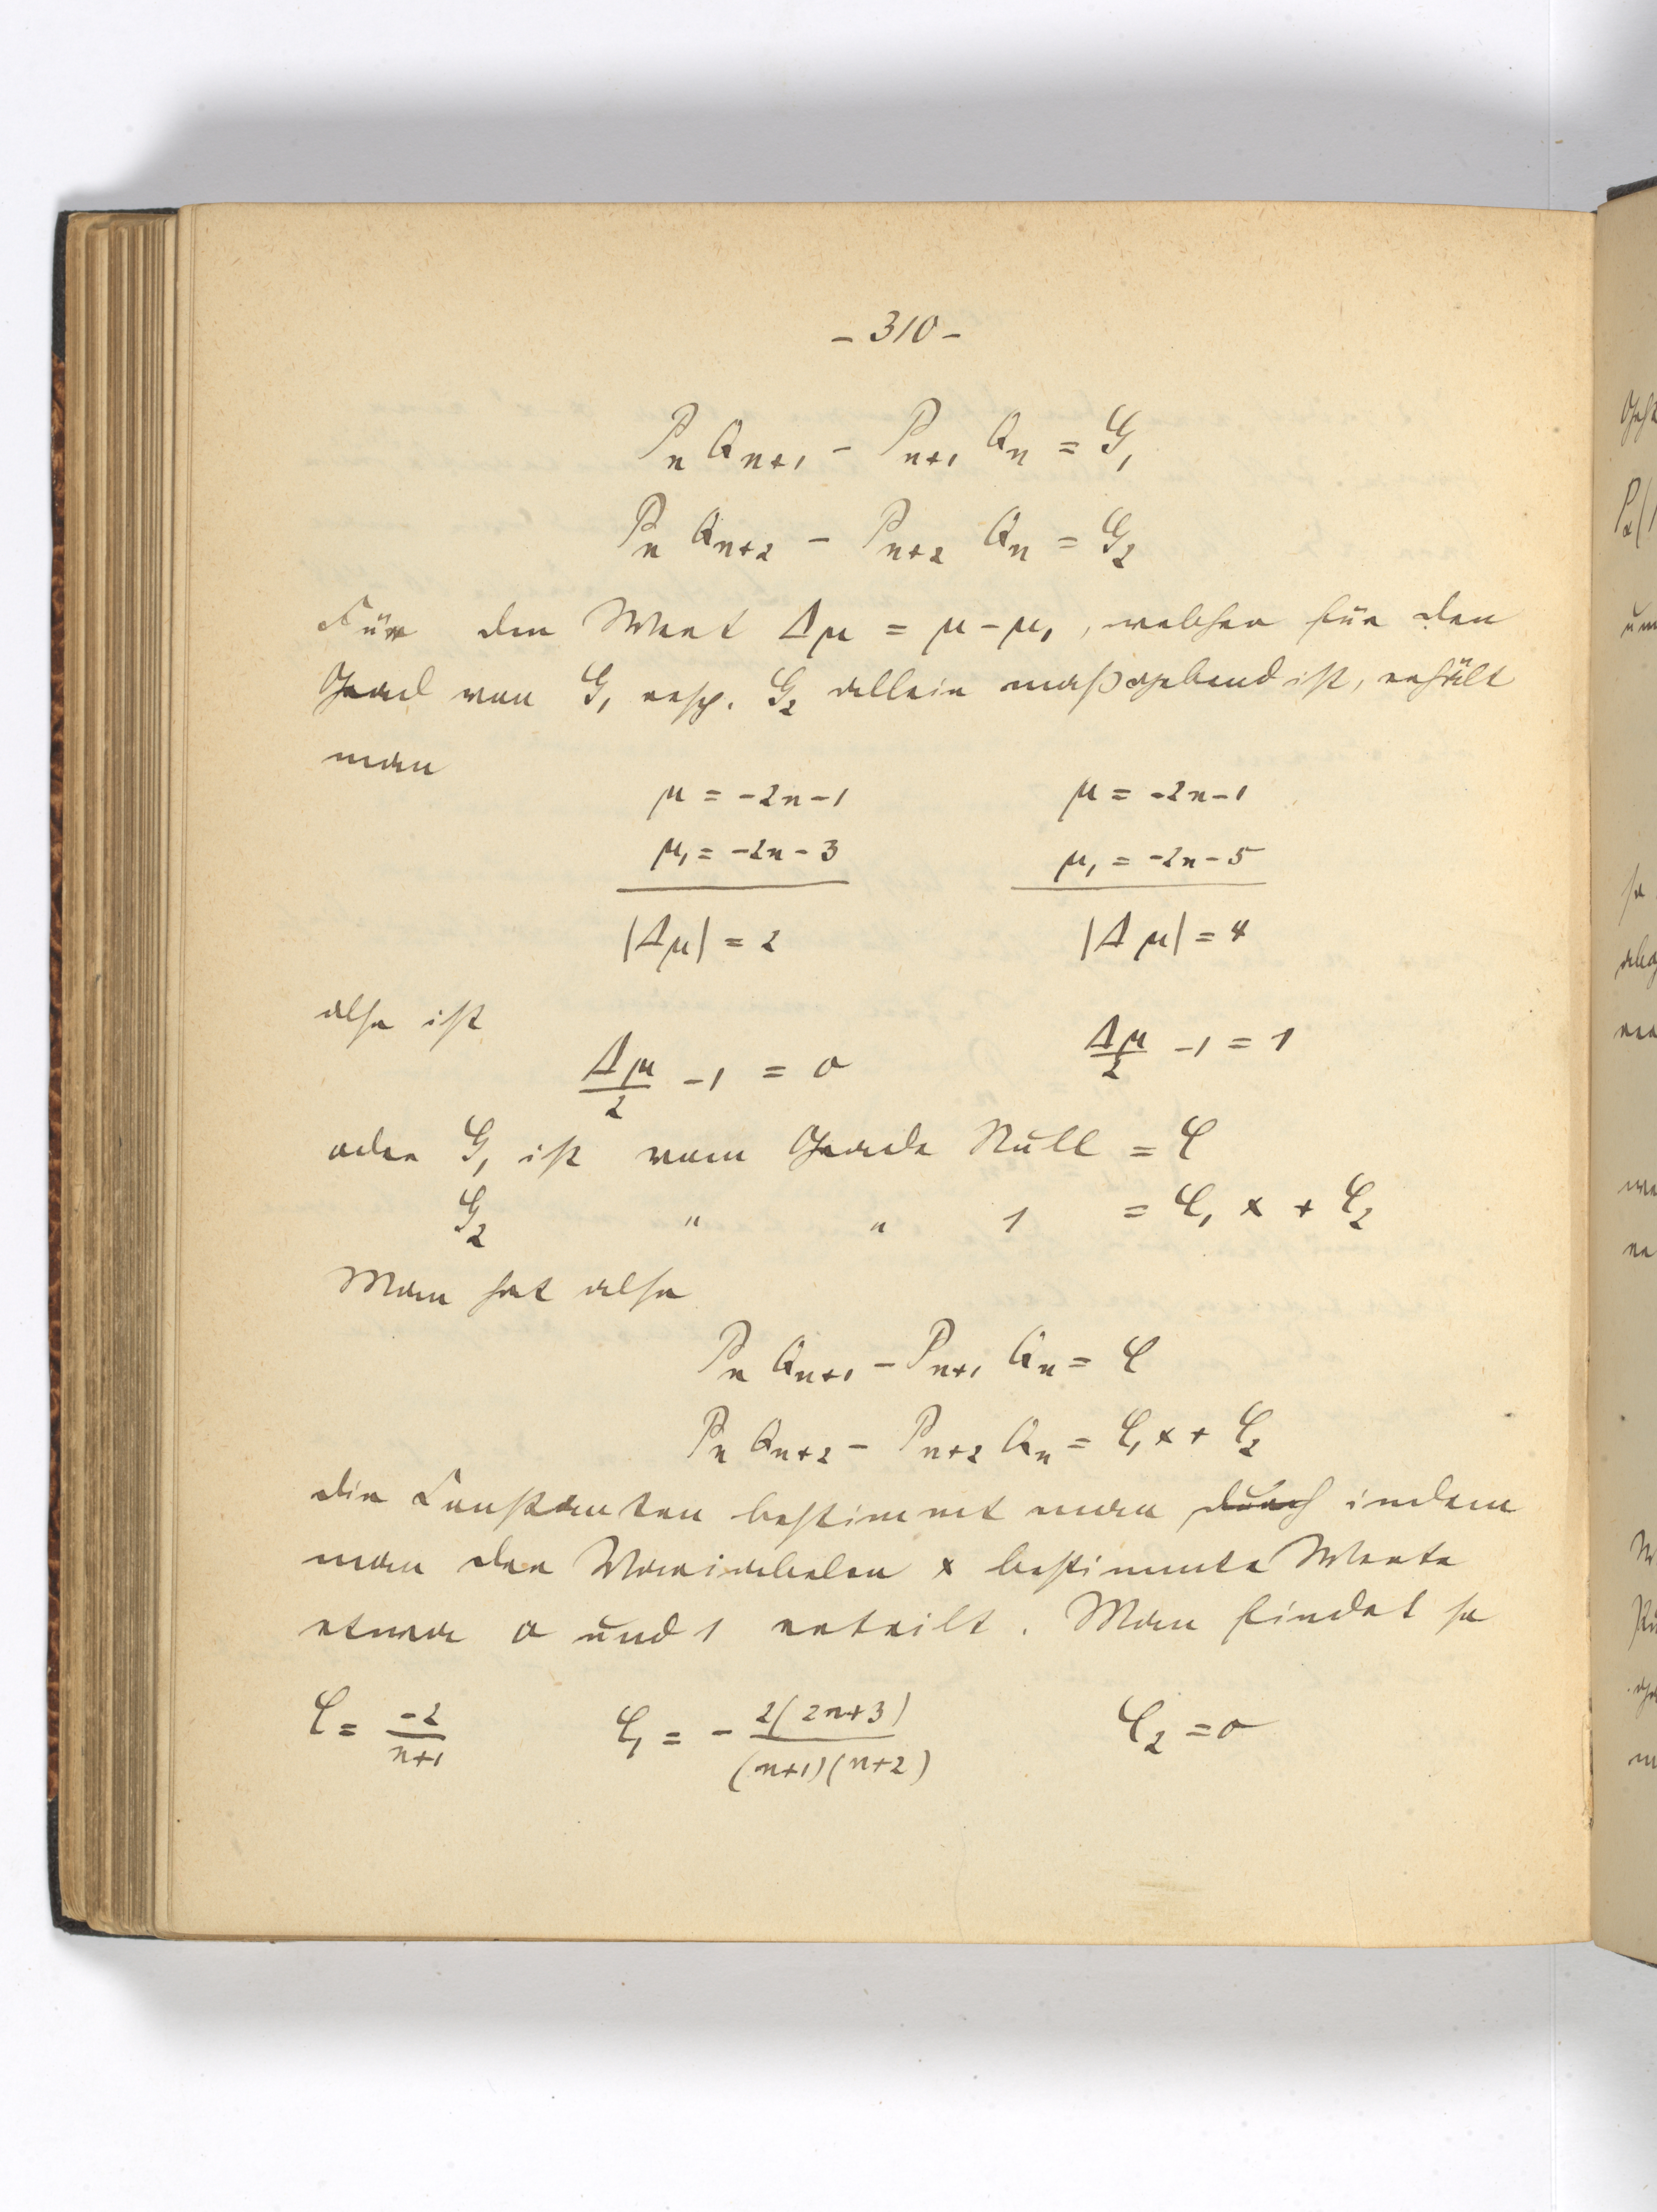 – 310 –
P_n Q_{n+1} – P_{n+1} Q_n = G_1
P_n Q_{n+2} – P_{n+2} Q_n = G_2
Für den Wert Δμ = μ – μ_1, welcher für den
Grad von G_1 resp. G_2 allein maßgebend ist, erhält
man
μ = –2n–1 μ = –2n–1
μ_1 = –2n–3 μ_1 = –2n–5
|Δμ| = 2 |Δμ| = 4
also ist
Δμ/2 –1 = 0 Δμ/2 –1 = 1
oder G_1 ist vom Grade Null = C
G_2 " " 1 = C_1 x + C_2
Man hat also
P_n Q_{n+1} – P_{n+1} Q_n = C
P_n Q_{n+2} – P_{n+2} Q_n = C_1 x + C_2
die Constanten bestimmt man durch indem
man der Variabelen x bestimmte Werte
etwa 0 und 1 erteilt. Man findet so
C = –2/(n+1) C_1 = – 2(2n+3)/((n+1)(n+2)) C_2 = 0